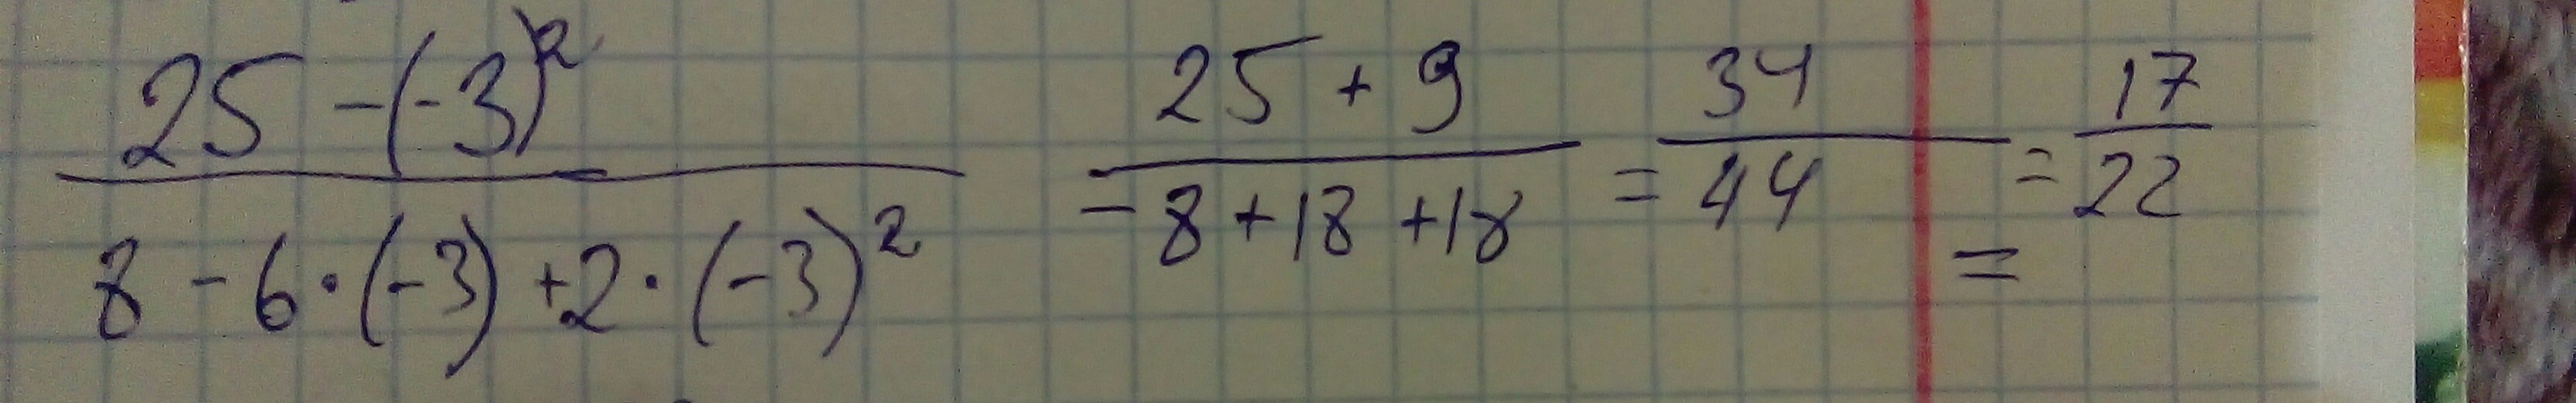 25 - (-3)²
8 - 6 · (-3) + 2 · (-3)²
25 + 9
- 8 + 18 + 18
= 34
44
= 17
22
=